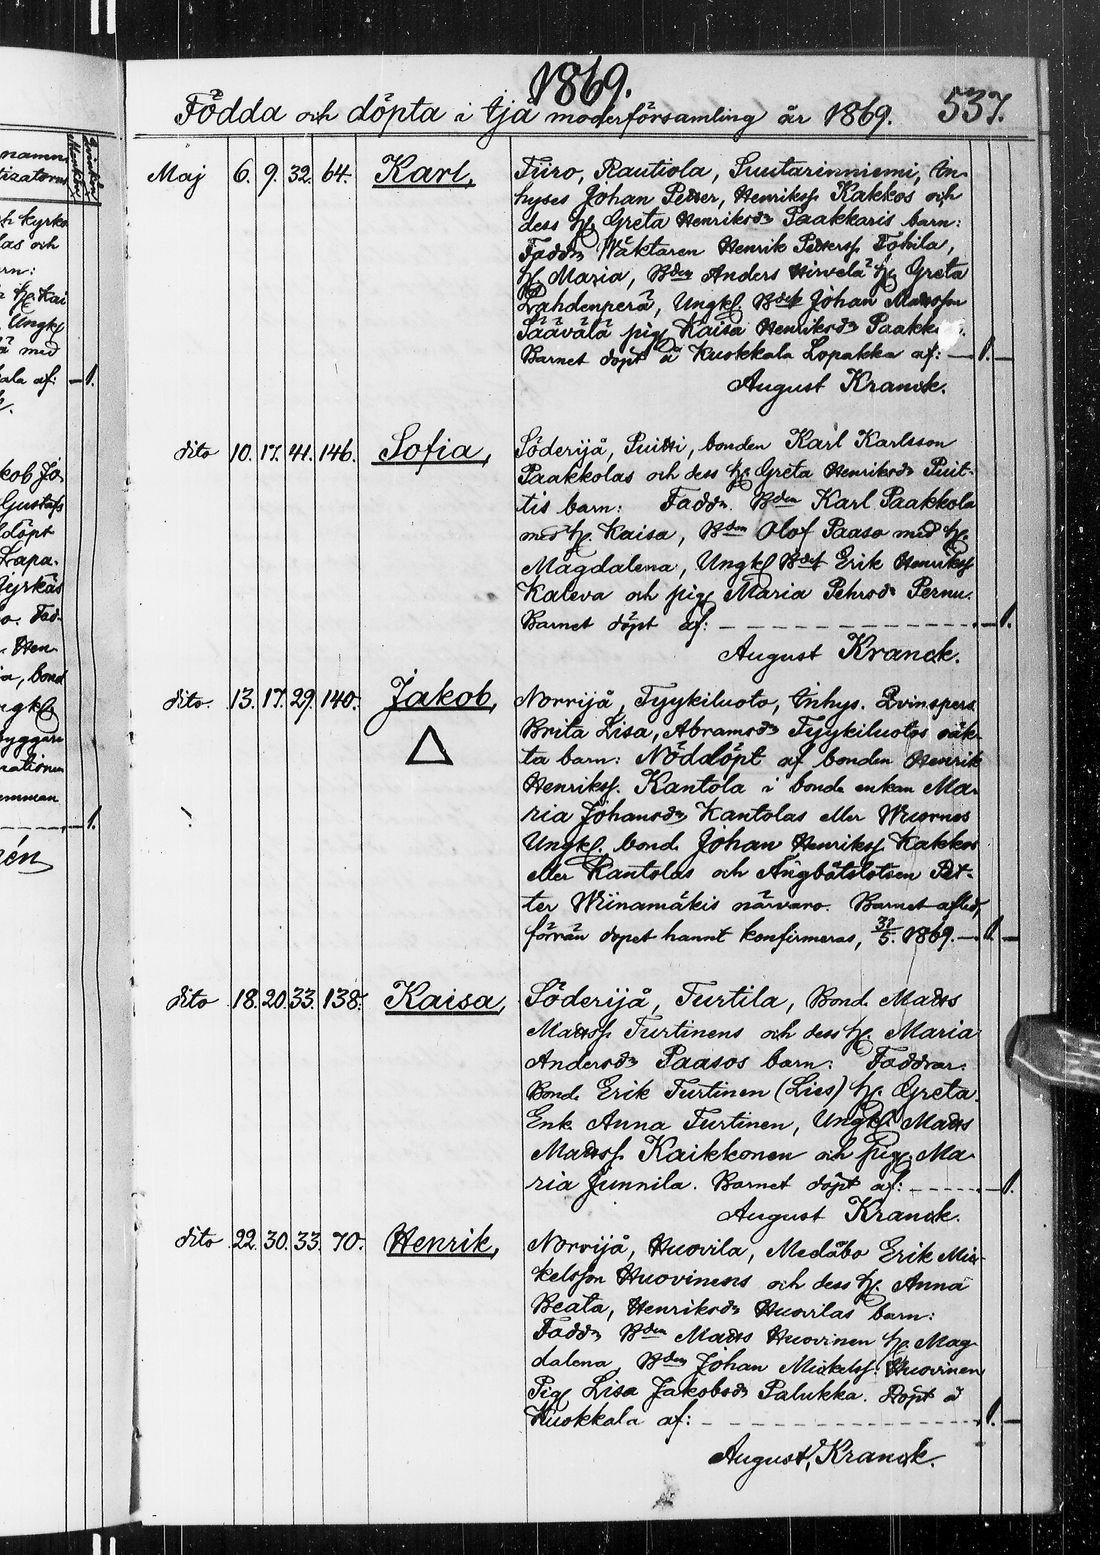 1869.
Födda och döpta i Ijå moderförsamling år 1869. 537.
Maj 6. 9. 32. 64. Karl,
Tiiro, Rautiola, Suutarinniemi, In-
hyses Johan Petter, Henrikss. Kakkos och
dess h. Greta Henriksdr Paakkaris barn:
Faddr Wäktaren Henrik Petterss. Tohila,
h. Maria, Bden Anders Hirvelä h. Greta
Lahdenperä, Ungk. Bdes Johan Mattsson
Säävälä pig. Kaisa Henriksdr
Barnet döpt å Kuokkala Lopakka af: — 1. —
August Kranck.
dito 10. 17. 41. 146. Sofia,
Söderijå, Puitti, bonden Karl Karlsson
Paakkolas och dess h. Greta Henriksdr Puit-
tis barn: Faddr. Bden Karl Paakkola
med h. Kaisa, Bden Olof Paaso med h.
Magdalena, Ungk. Bdes Erik Henrikss
Kaleva och pig. Maria Pehrsdr Pernu.
Barnet döpt af: — 1.
August Kranck.
dito. 13. 17. 29. 140. Jakob,
△
Norrijå, Tyykiluoto, Inhys. Qvinspers.
Brita Lisa, Abramsdr Tyykiluotos oäk-
ta barn: Nöddöpt af bonden Henrik
Henrikss. Kantola i bonde enkan Ma-
ria Johansdr Kantolas eller Wuornos
Ungk. bond. Johan Henrikss. Kakkos
eller Kantolas och Ångbåtslotsen Pet-
ter Wiinamäkis närvaro. Barnet afled,
förrän dopet hannt konfirmeras, 31/5. 1869. — 1. —
dito 18. 20. 33. 138. Kaisa,
Söderijå, Turtila, Bond. Matts
Mattss. Turtinens och dess h. Maria
Andersdr Paasos barn: Faddrar:
Bond. Erik Turtinen (Lies) h. Greta.
Enk. Anna Turtinen, Ungk. Matts
Mattss. Kaikkonen och pig. Ma-
ria Junnila. Barnet döpt af: — 1.
August Kranck.
dito 22. 30. 33. 70. Henrik,
Norrijå, Huovila, Medåbo Erik Mic-
kelsson Huovinens och dess h. Anna
Beata, Henriksdr Huovilas barn:
Faddr Bden Matts Huovinen h. Mag-
dalena, Bden Johan Mickelss. Huovinen
Pig. Lisa Jakobsdr Palukka. Döpt å
Kuokkala af: — 1. —
August Kranck.